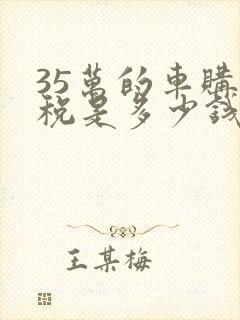 35萬的車購
稅是多少錢
王某梅